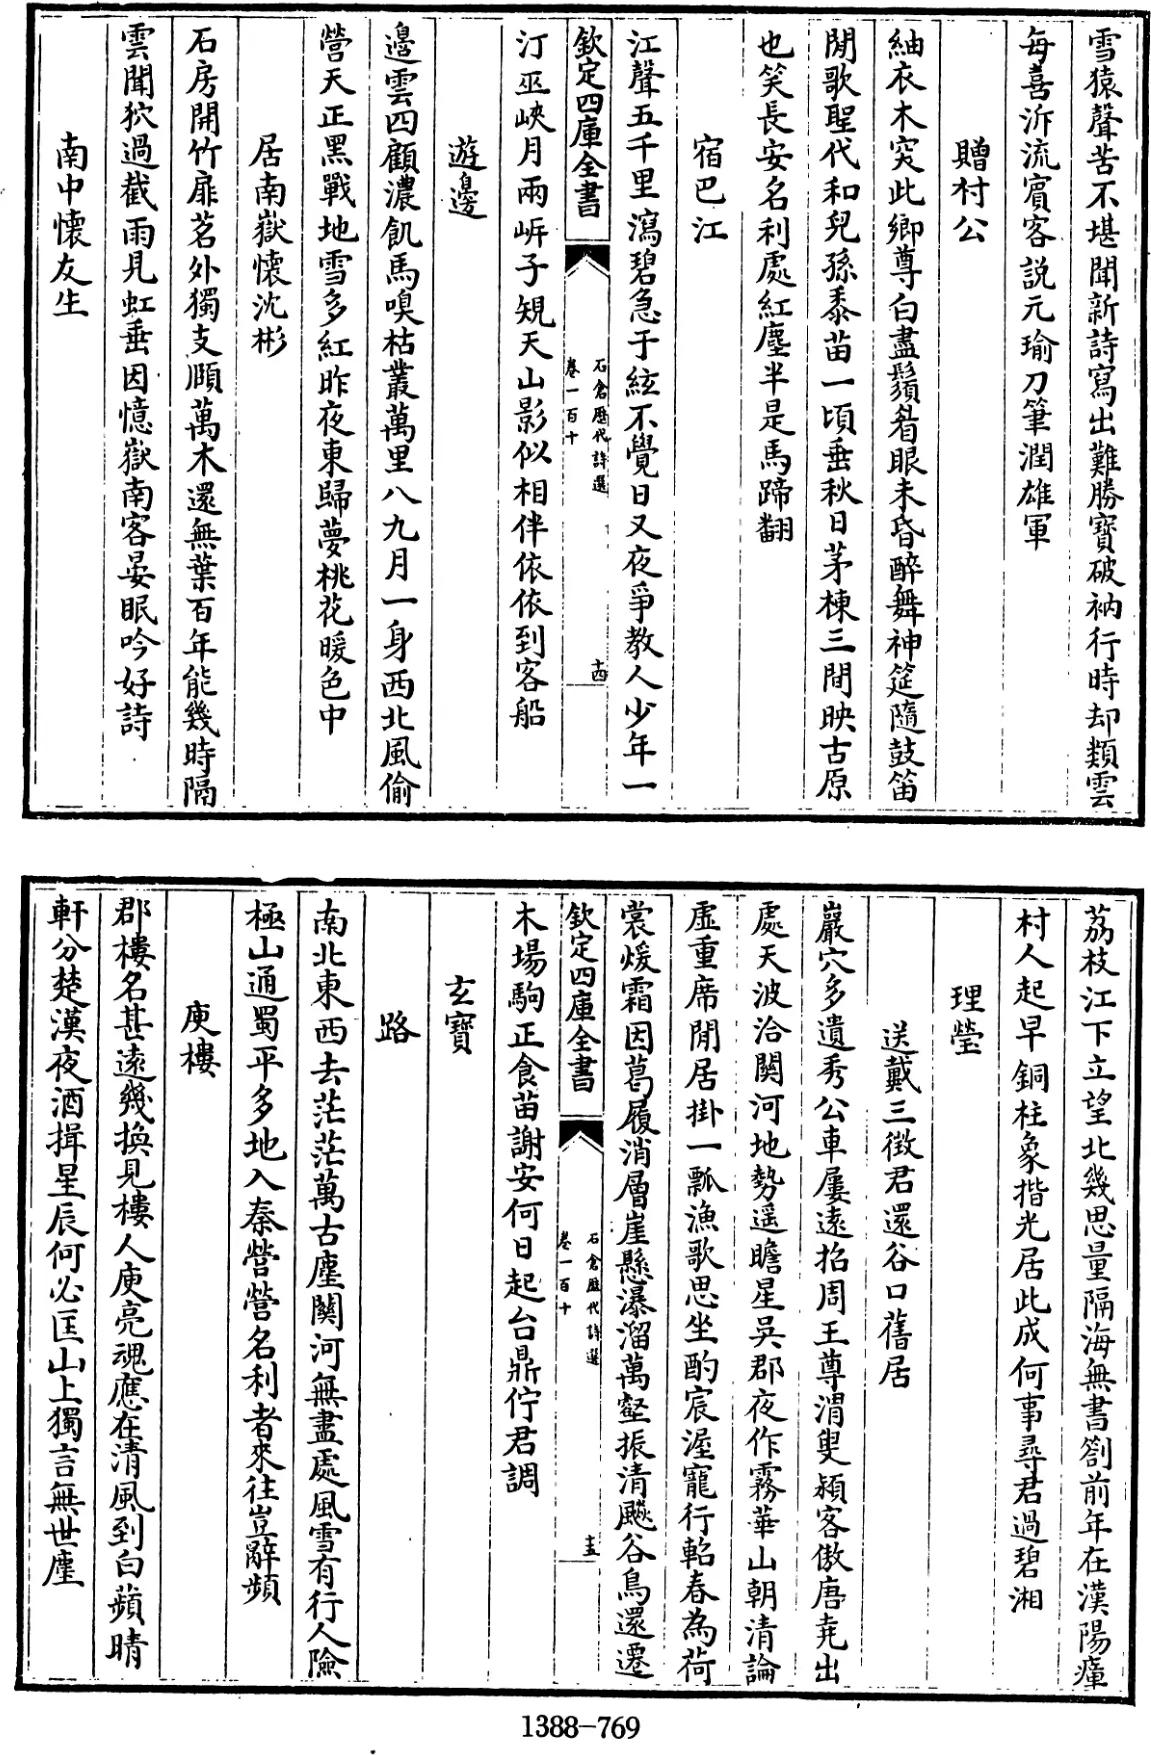 雪猿聲苦不堪聞新詩寫出難勝寶破衲行時却類雲
每喜泝流賓客說元瑜刀筆潤雄軍
贈村公
紬衣木突此鄉尊白盡鬚眉眼未昏醉舞神筵隨鼓笛
閒歌聖代和兒孫黍苗一頃垂秋日茅棟三間映古原
也笑長安名利處紅塵半是馬蹄翻
宿巴江
江聲五千里瀉碧急于絃不覺日又夜爭教人少年一
欽定四庫全書
石倉歷代詩選
卷一百十
十四
汀巫峽月兩㟁子規天山影似相伴依依到客船
遊邊
邊雲四顧濃飢馬嗅枯叢萬里八九月一身西北風偷
營天正黑戰地雪多紅昨夜東歸夢桃花暖色中
居南嶽懷沈彬
石房開竹扉茗外獨支頤萬木還無葉百年能幾時隔
雲聞狖過截雨見虹垂因憶嶽南客晏眠吟好詩
南中懷友生
荔枝江下立望北幾思量隔海無書劄前年在漢陽瘴
村人起早銅柱象揩光居此成何事尋君過碧湘
理瑩
送戴三徵君還谷口舊居
巖穴多遺秀公車屢遠招周王尊渭叟潁客傲唐堯出
處天波洽關河地勢遥瞻星吳郡夜作霧華山朝清論
虛重席閒居掛一瓢漁歌思坐酌宸渥寵行軺春為荷
裳煖霜因葛履消層崖懸瀑溜萬壑振清飇谷鳥還遷
欽定四庫全書
石倉歷代詩選
卷一百十
十五
木場駒正食苗謝安何日起台鼎佇君調
玄寶
路
南北東西去茫茫萬古塵關河無盡處風雪有行人險
極山通蜀平多地入秦營營名利者來往豈辭頻
庾樓
郡樓名甚遠幾換見樓人庾亮魂應在清風到白蘋晴
軒分楚漢夜酒揖星辰何必匡山上獨言無世塵
1388-769